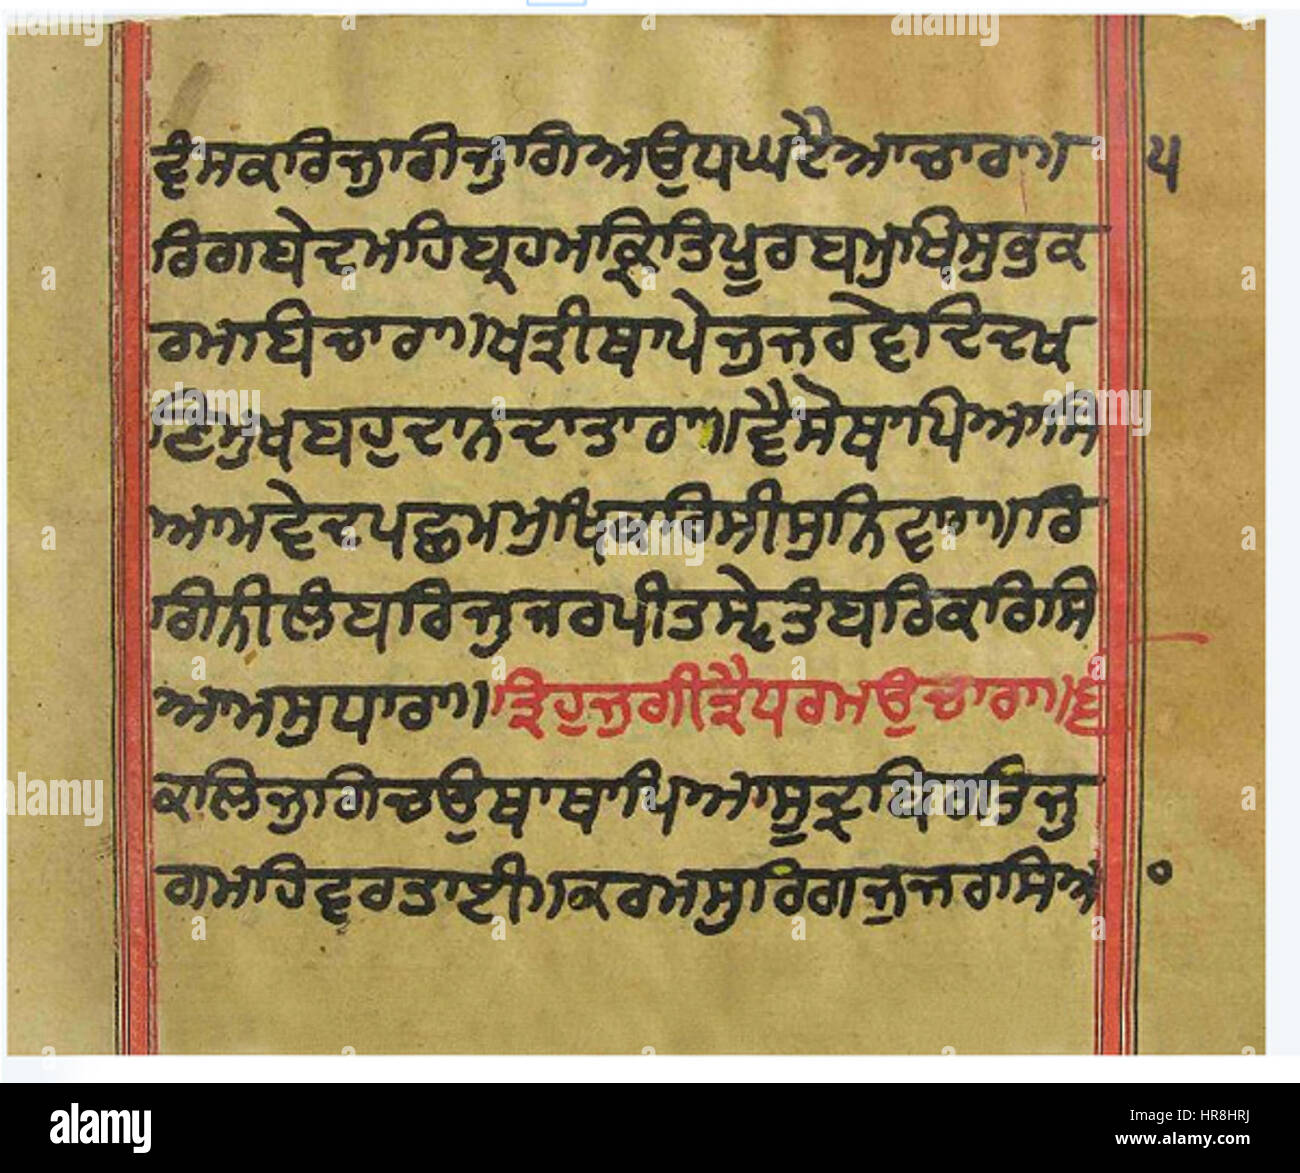 ਵੰਸਕਰਿਜੁਗਿਜੁਗਿਅਉਧਘਟੈਆਚਾਰਾ॥ ੫
ਰਿਗਬੇਦਮਹਿਬ੍ਰਹਮਕ੍ਰਿਤਿਪੂਰਬਮੁਖਿਸੁਭਕ
ਰਮਬਿਚਾਰਾ॥ਖਤ੍ਰੀਥਾਪੇਜੁਜਰਵੇਦਿਦਖ
ਣਿਮੁਖਬਹੁਦਾਨਦਾਤਾਰਾ॥ਵੈਸੋਥਾਪਿਆਸਿ
ਆਮਵੇਦਪਛਮਮੁਖਿਕਰਿਸੀਸੁਨਿਵਾਰਾ॥ਰਿ
ਗਿਨੀਲੰਬਰਿਜੁਜਰਪੀਤਸ੍ਵੇਤੰਬਰਿਕਰਿਸਿ
ਆਮਸੁਧਾਰਾ॥ਤ੍ਰਿਹੁਜੁਗੀਤ੍ਰੈਧਰਮਉਚਾਰਾ॥੬
ਕਲਿਜੁਗਿਚਉਥਾਥਾਪਿਆਸੂਦ੍ਰਬਿਰਤਿਜੁ
ਗਮਹਿਵਰਤਾਈ॥ਕਰਮਸੁਰਿਗਜੁਜਰਸਿਅ ੦
alamy
HR8HRJ
www.alamy.com